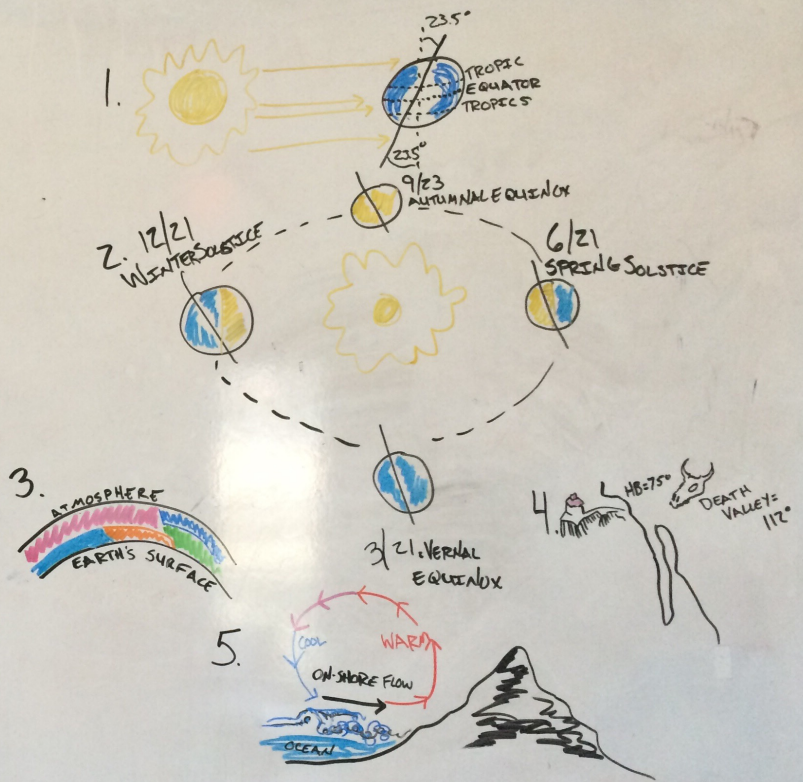 1.
23.5°
TROPIC
EQUATOR
TROPICS
23.5°
9/23
AUTUMNAL EQUINOX
2. 12/21
WINTER SOLSTICE
6/21
SPRING SOLSTICE
3/21. VERNAL
EQUINOX
3.
ATMOSPHERE
EARTH'S SURFACE
4.
HB=75°
DEATH
VALLEY=
112°
5.
COOL
WARM
ON-SHORE FLOW
OCEAN